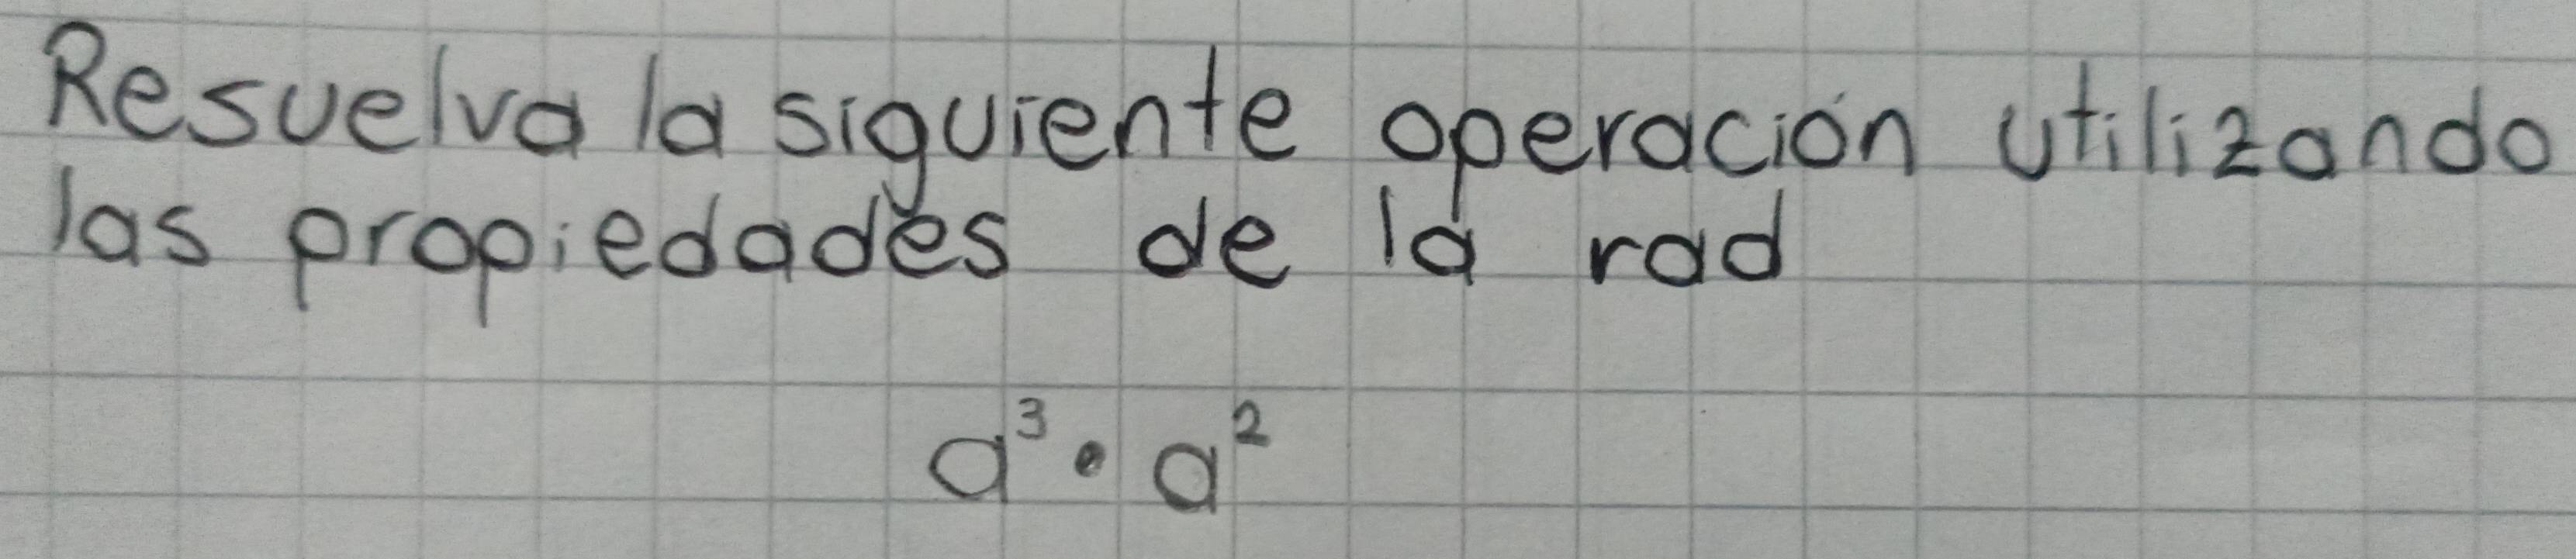 Resuelva la siguiente operación utilizando
las propiedades de la rad
a³ • a²